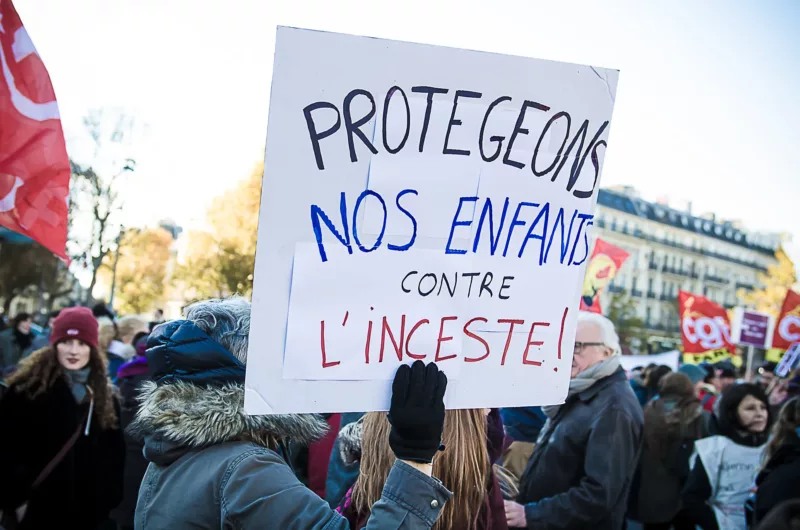 PROTEGEONS
NOS ENFANTS
CONTRE
L'INCESTE!
cgt